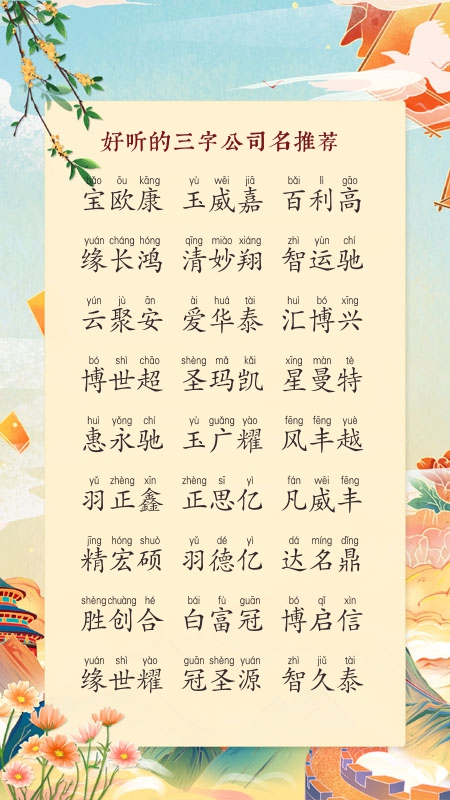 好听的三字公司名推荐
bǎo ōu kāng yù wēi jiā bǎi lì gāo
宝欧康 玉威嘉 百利高
yuán cháng hóng qīng miào xiáng zhì yùn chí
缘长鸿 清妙翔 智运驰
yún jù ān ài huá tài huì bó xīng
云聚安 爱华泰 汇博兴
bó shì chāo shèng mǎ kǎi xīng màn tè
博世超 圣玛凯 星曼特
huì yǒng chí yù guǎng yào fēng fēng yuè
惠永驰 玉广耀 风丰越
yǔ zhèng xīn zhèng sī yì fán wēi fēng
羽正鑫 正思亿 凡威丰
jīng hóng shuò yǔ dé yì dá míng dǐng
精宏硕 羽德亿 达名鼎
shèng chuàng hé bái fù guān bó qǐ xìn
胜创合 白富冠 博启信
yuán shì yào guān shèng yuán zhì jiǔ tài
缘世耀 冠圣源 智久泰